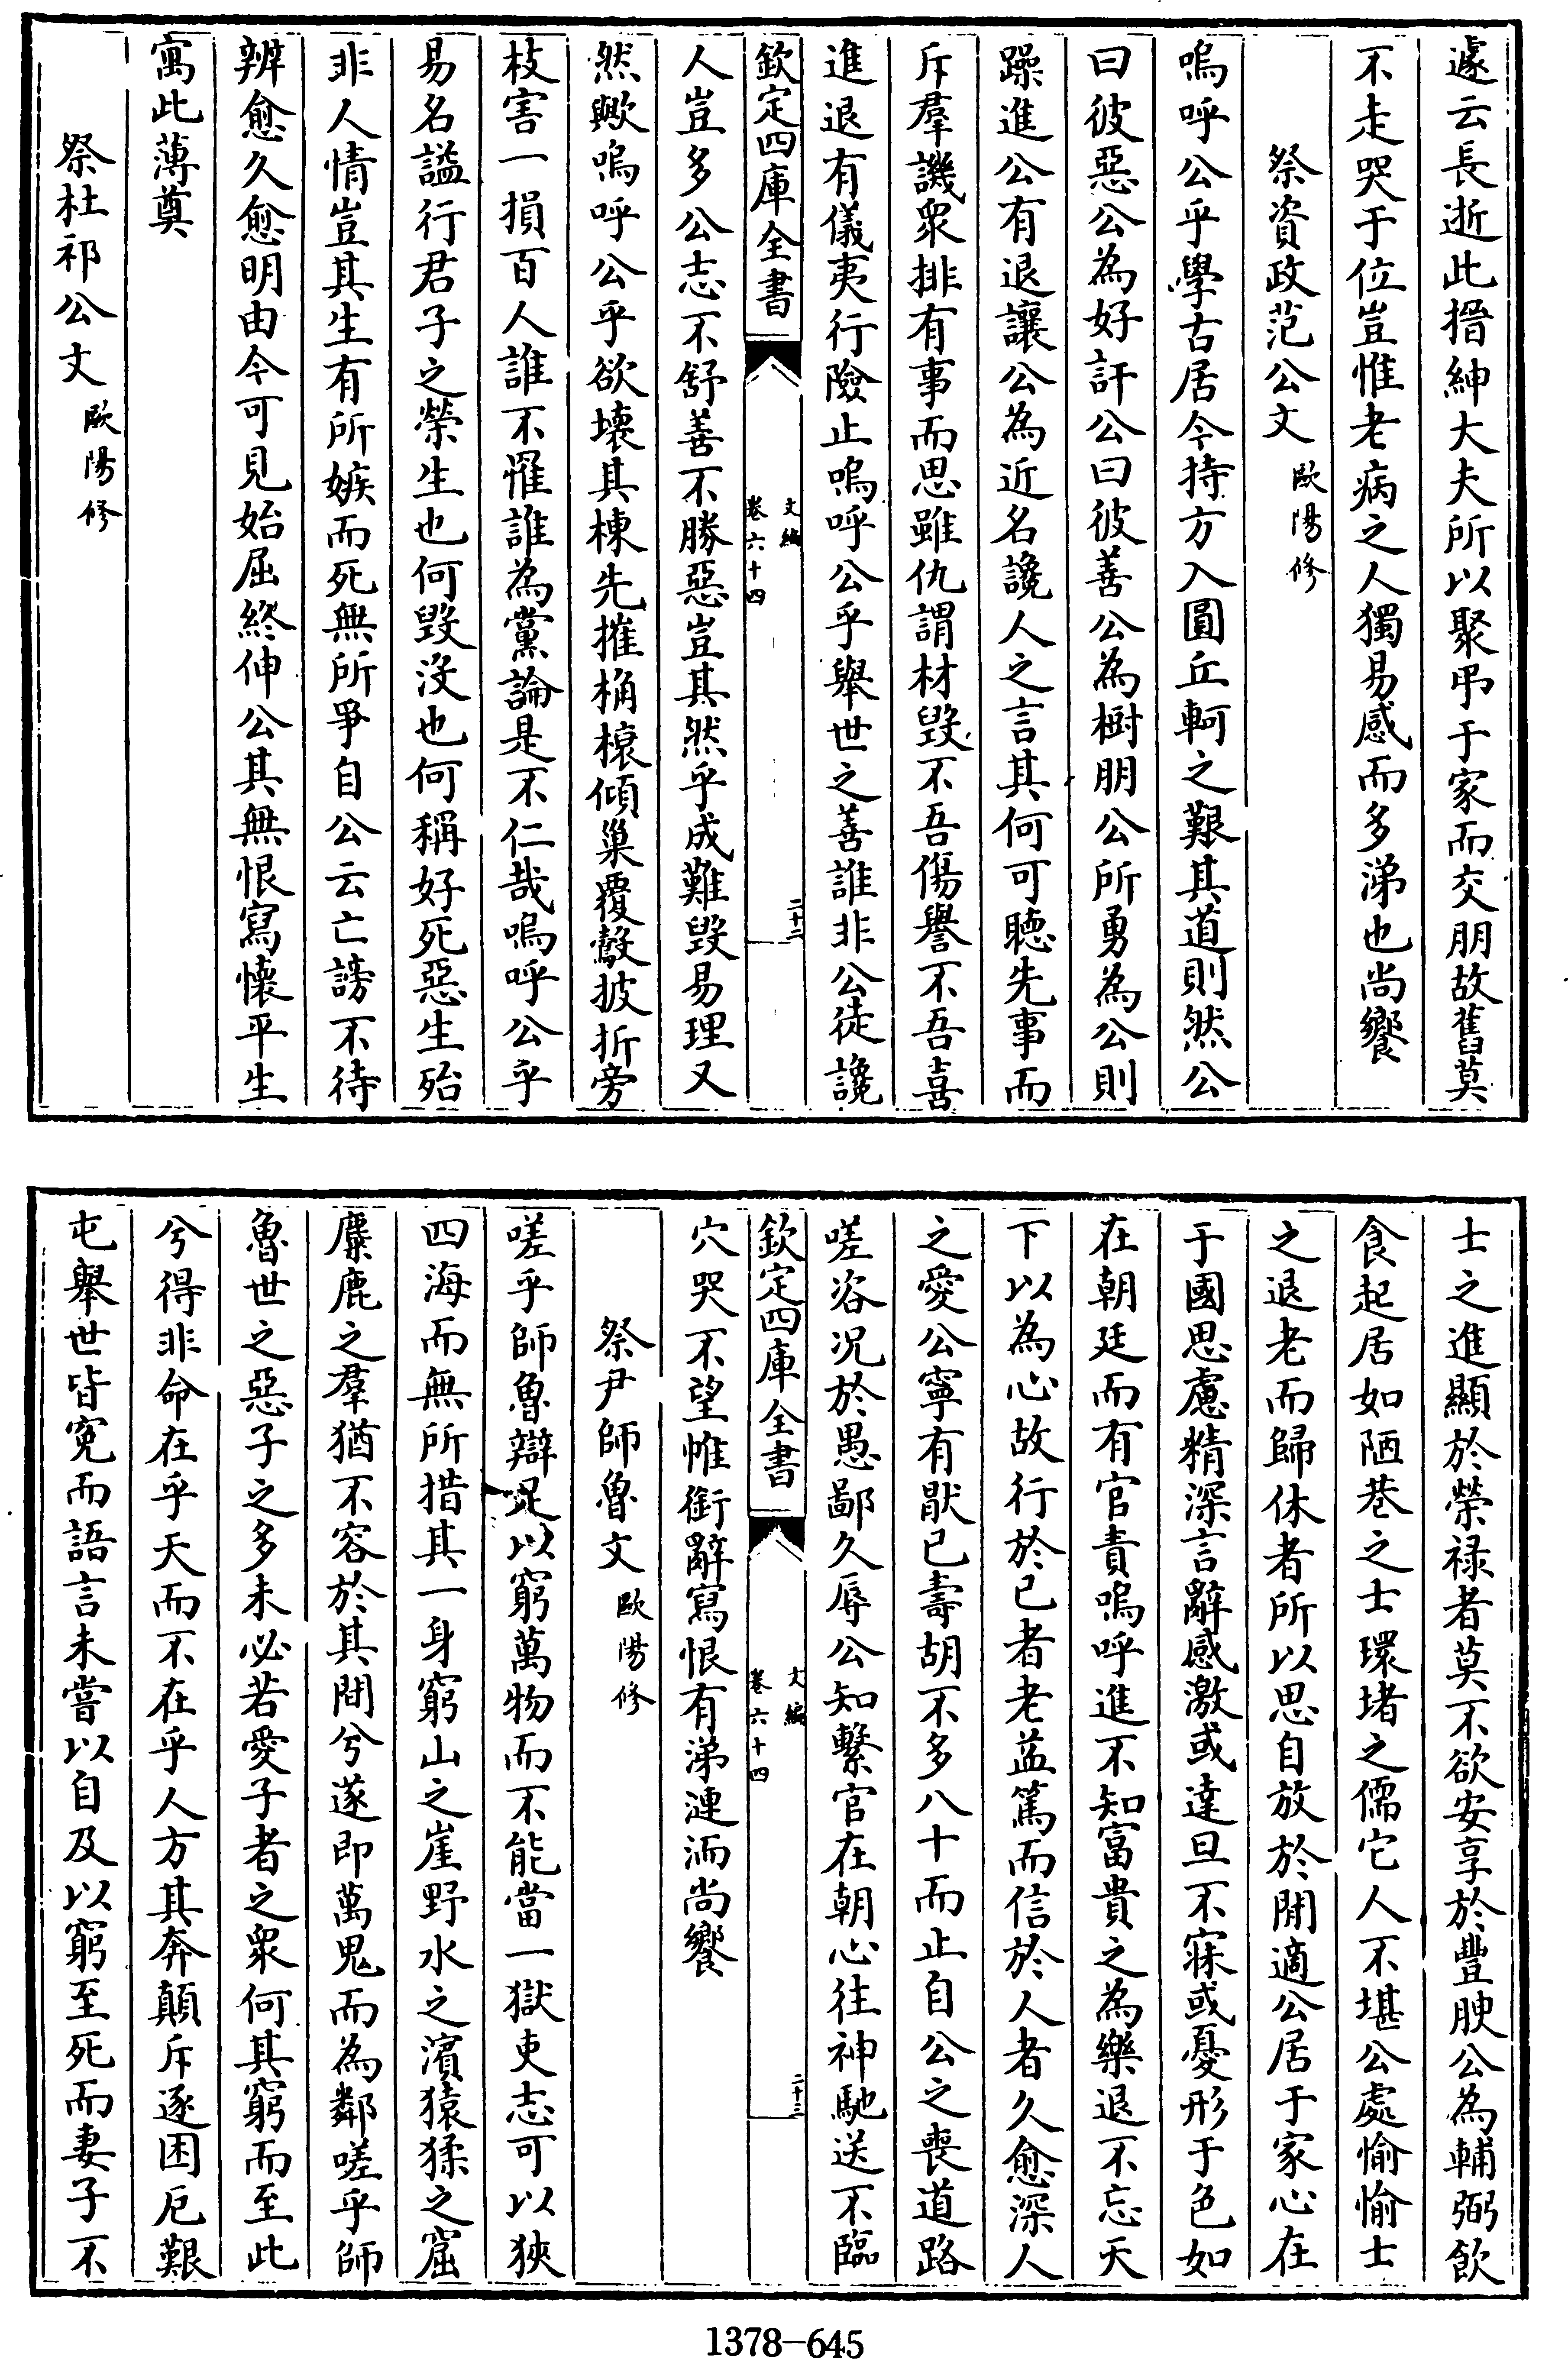 遽云長逝此搢紳大夫所以聚弔于家而交朋故舊莫
不走哭于位豈惟老病之人獨易感而多涕也尚饗
祭資政范公文 歐陽修
嗚呼公乎學古居今持方入圓丘軻之艱其道則然公
曰彼惡公為好訐公曰彼善公為樹朋公所勇為公則
躁進公有退讓公為近名讒人之言其何可聽先事而
斥羣譏衆排有事而思雖仇謂材毀不吾傷譽不吾喜
進退有儀夷行險止嗚呼公乎舉世之善誰非公徒讒
欽定四庫全書 文編 卷六十四 二十二
人豈多公志不舒善不勝惡豈其然乎成難毀易理又
然歟嗚呼公乎欲壊其棟先摧桷榱傾巢覆鷇披折旁
枝害一損百人誰不罹誰為黨論是不仁哉嗚呼公乎
易名謚行君子之榮生也何毀沒也何稱好死惡生殆
非人情豈其生有所嫉而死無所爭自公云亡謗不待
辨愈久愈明由今可見始屈終伸公其無恨寫懷平生
寓此薄奠
祭杜祁公文 歐陽修
士之進顯於榮禄者莫不欲安享於豐腴公為輔弼飲
食起居如陋巷之士環堵之儒它人不堪公處愉愉士
之退老而歸休者所以思自放於閒適公居于家心在
于國思慮精深言辭感激或達旦不寐或憂形于色如
在朝廷而有官責嗚呼進不知富貴之為樂退不忘天
下以為心故行於已者老益篤而信於人者久愈深人
之愛公寧有厭已壽胡不多八十而止自公之喪道路
嗟咨况於愚鄙久辱公知繫官在朝心往神馳送不臨
欽定四庫全書 文編 卷六十四 二十三
穴哭不望帷銜辭寫恨有涕漣洏尚饗
祭尹師魯文 歐陽修
嗟乎師魯辯足以窮萬物而不能當一獄吏志可以狹
四海而無所措其一身窮山之崖野水之濱猿猱之窟
麋鹿之羣猶不容於其間兮遂即萬鬼而為鄰嗟乎師
魯世之惡子之多未必若愛子者之衆何其窮而至此
兮得非命在乎天而不在乎人方其奔顛斥逐困厄艱
屯舉世皆寃而語言未嘗以自及以窮至死而妻子不
1378-645